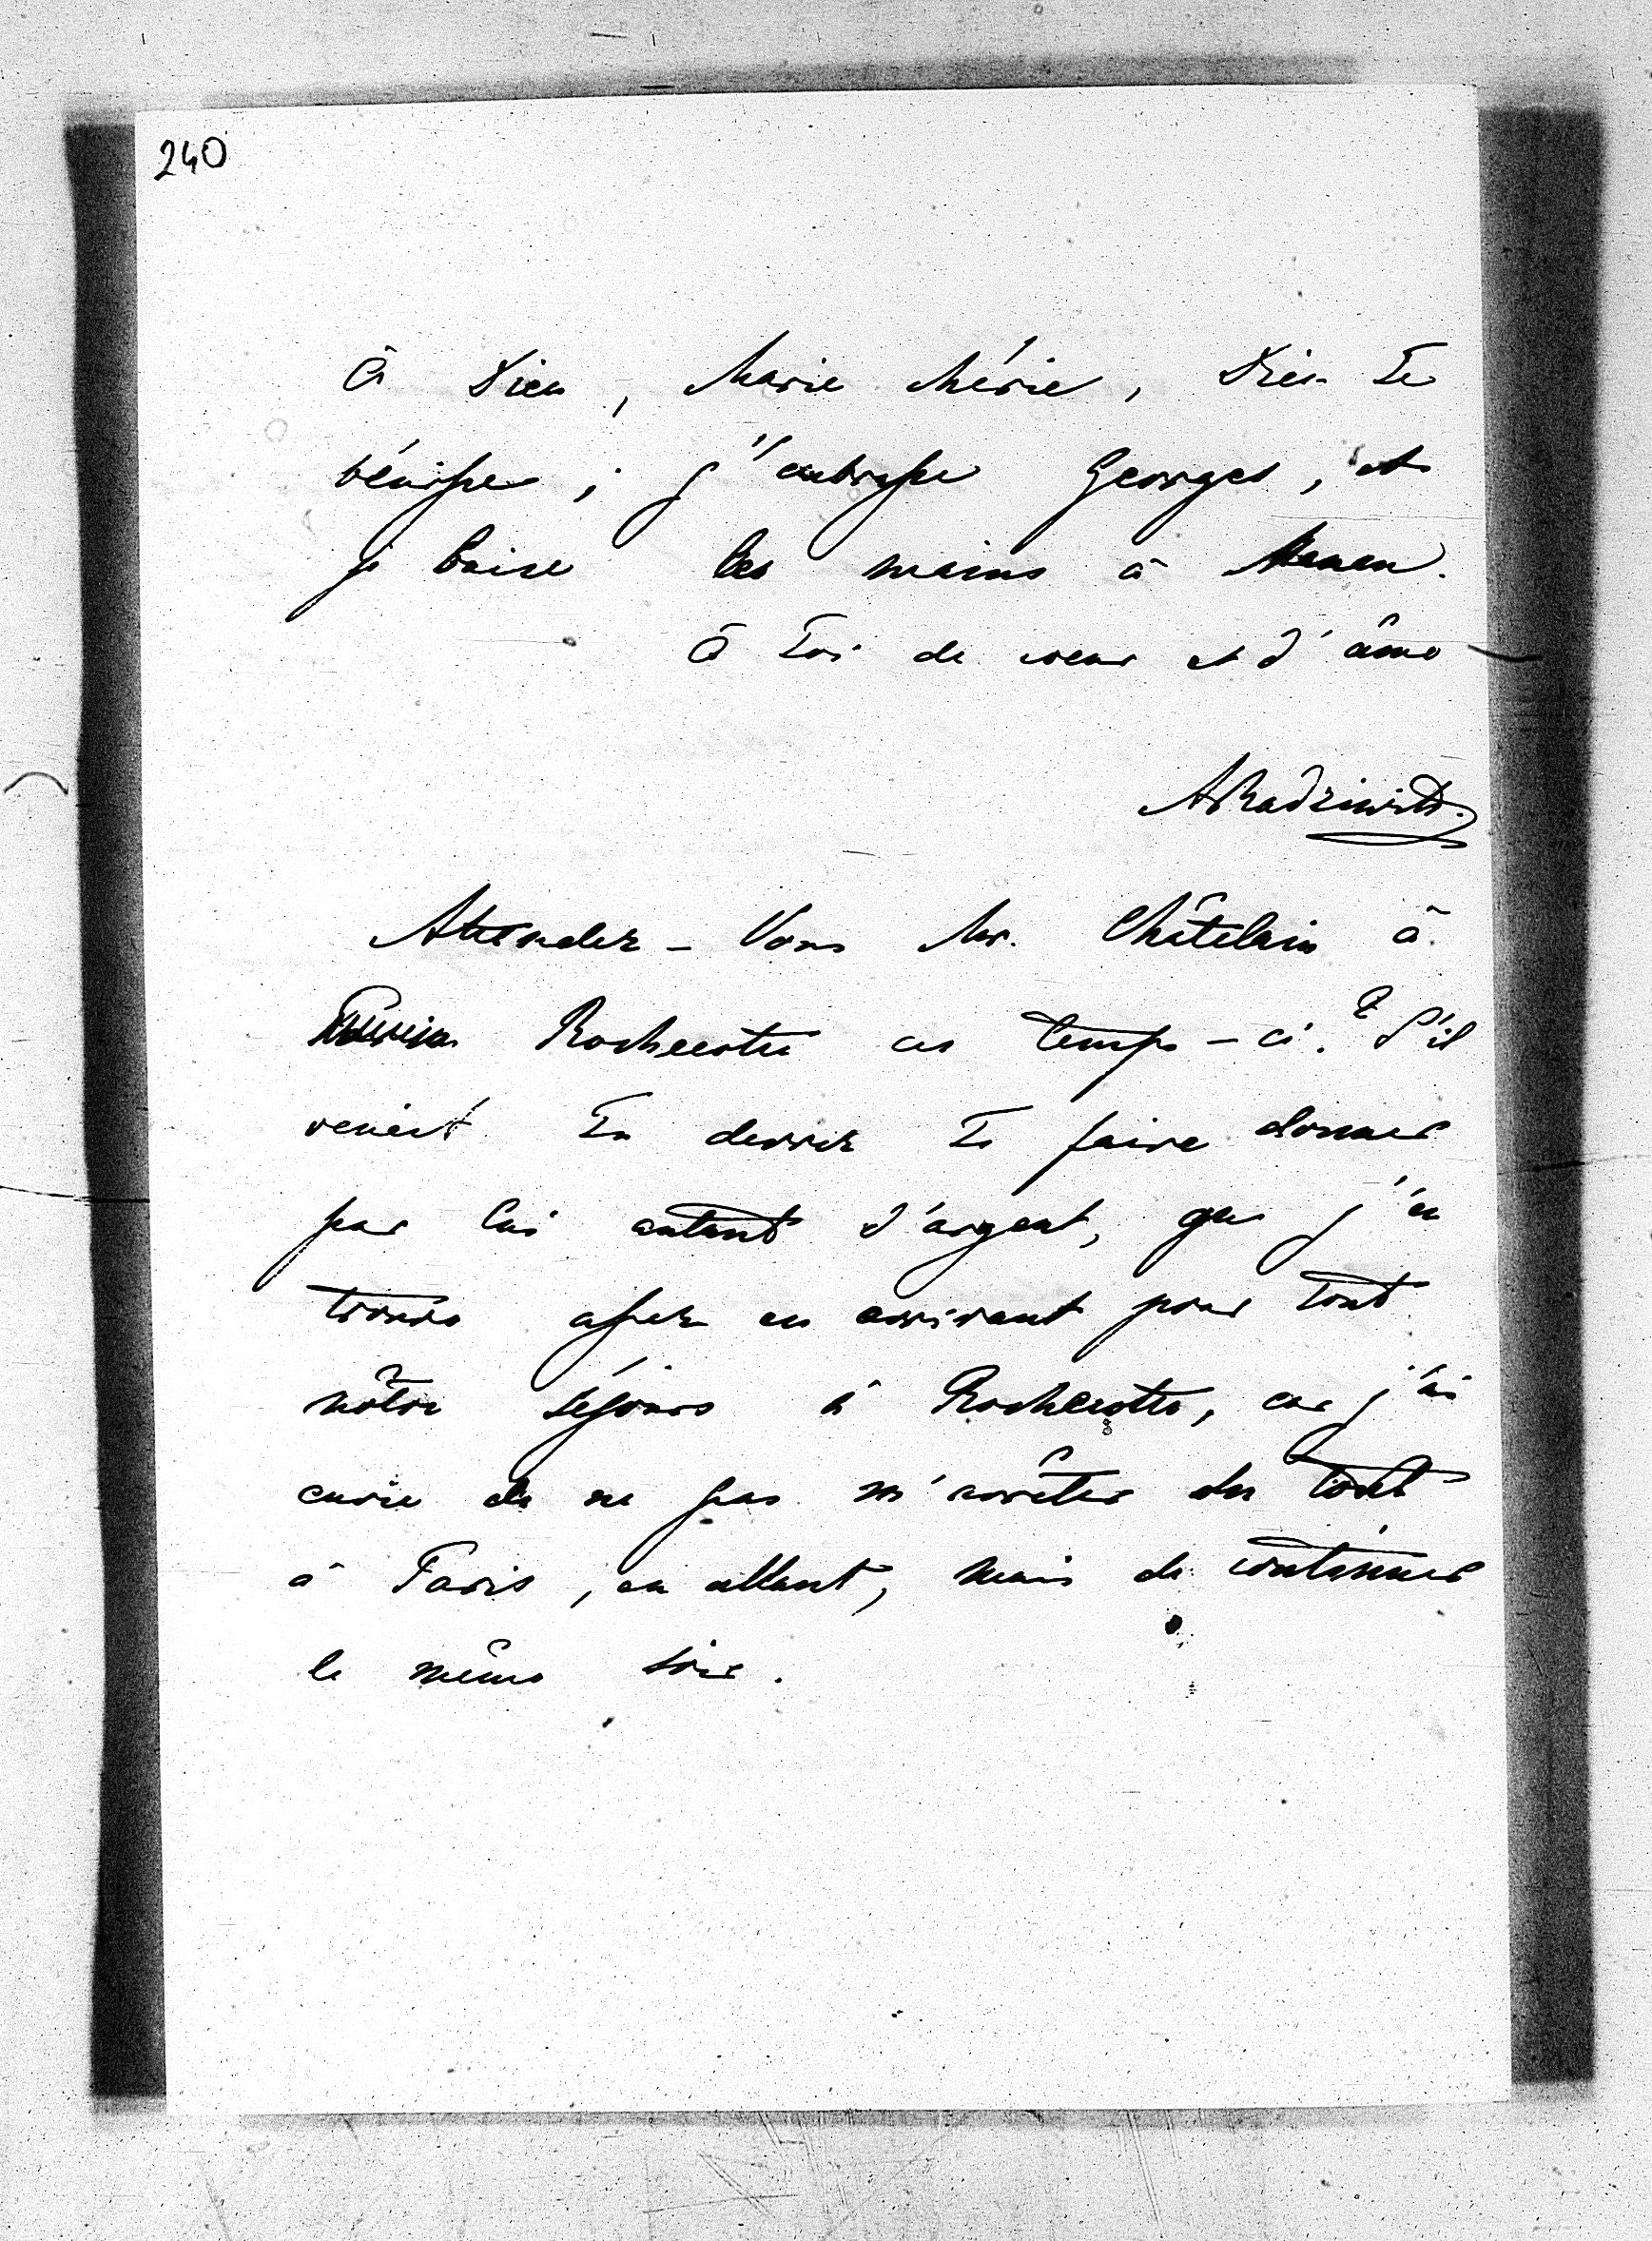 240
à Dieu, Marie chérie, Dieu Te
bénisse; j'embrasse Georges, et
je baise les mains à Maman.
à Toi de coeur et d'âme
ARadziwill.
Attendez-Vous Mr. Châtelain à
Rochecotte ces temps-ci? S'il
venait Tu devrez Te faire donner
par lui autant d'argent, que j'en
trouve assez en arrivant pour tout
nôtre séjour à Rochecotte, car j'ai
envie de ne pas m'arrêter du tout
à Paris, en allant, mais de continuer
le même soir.